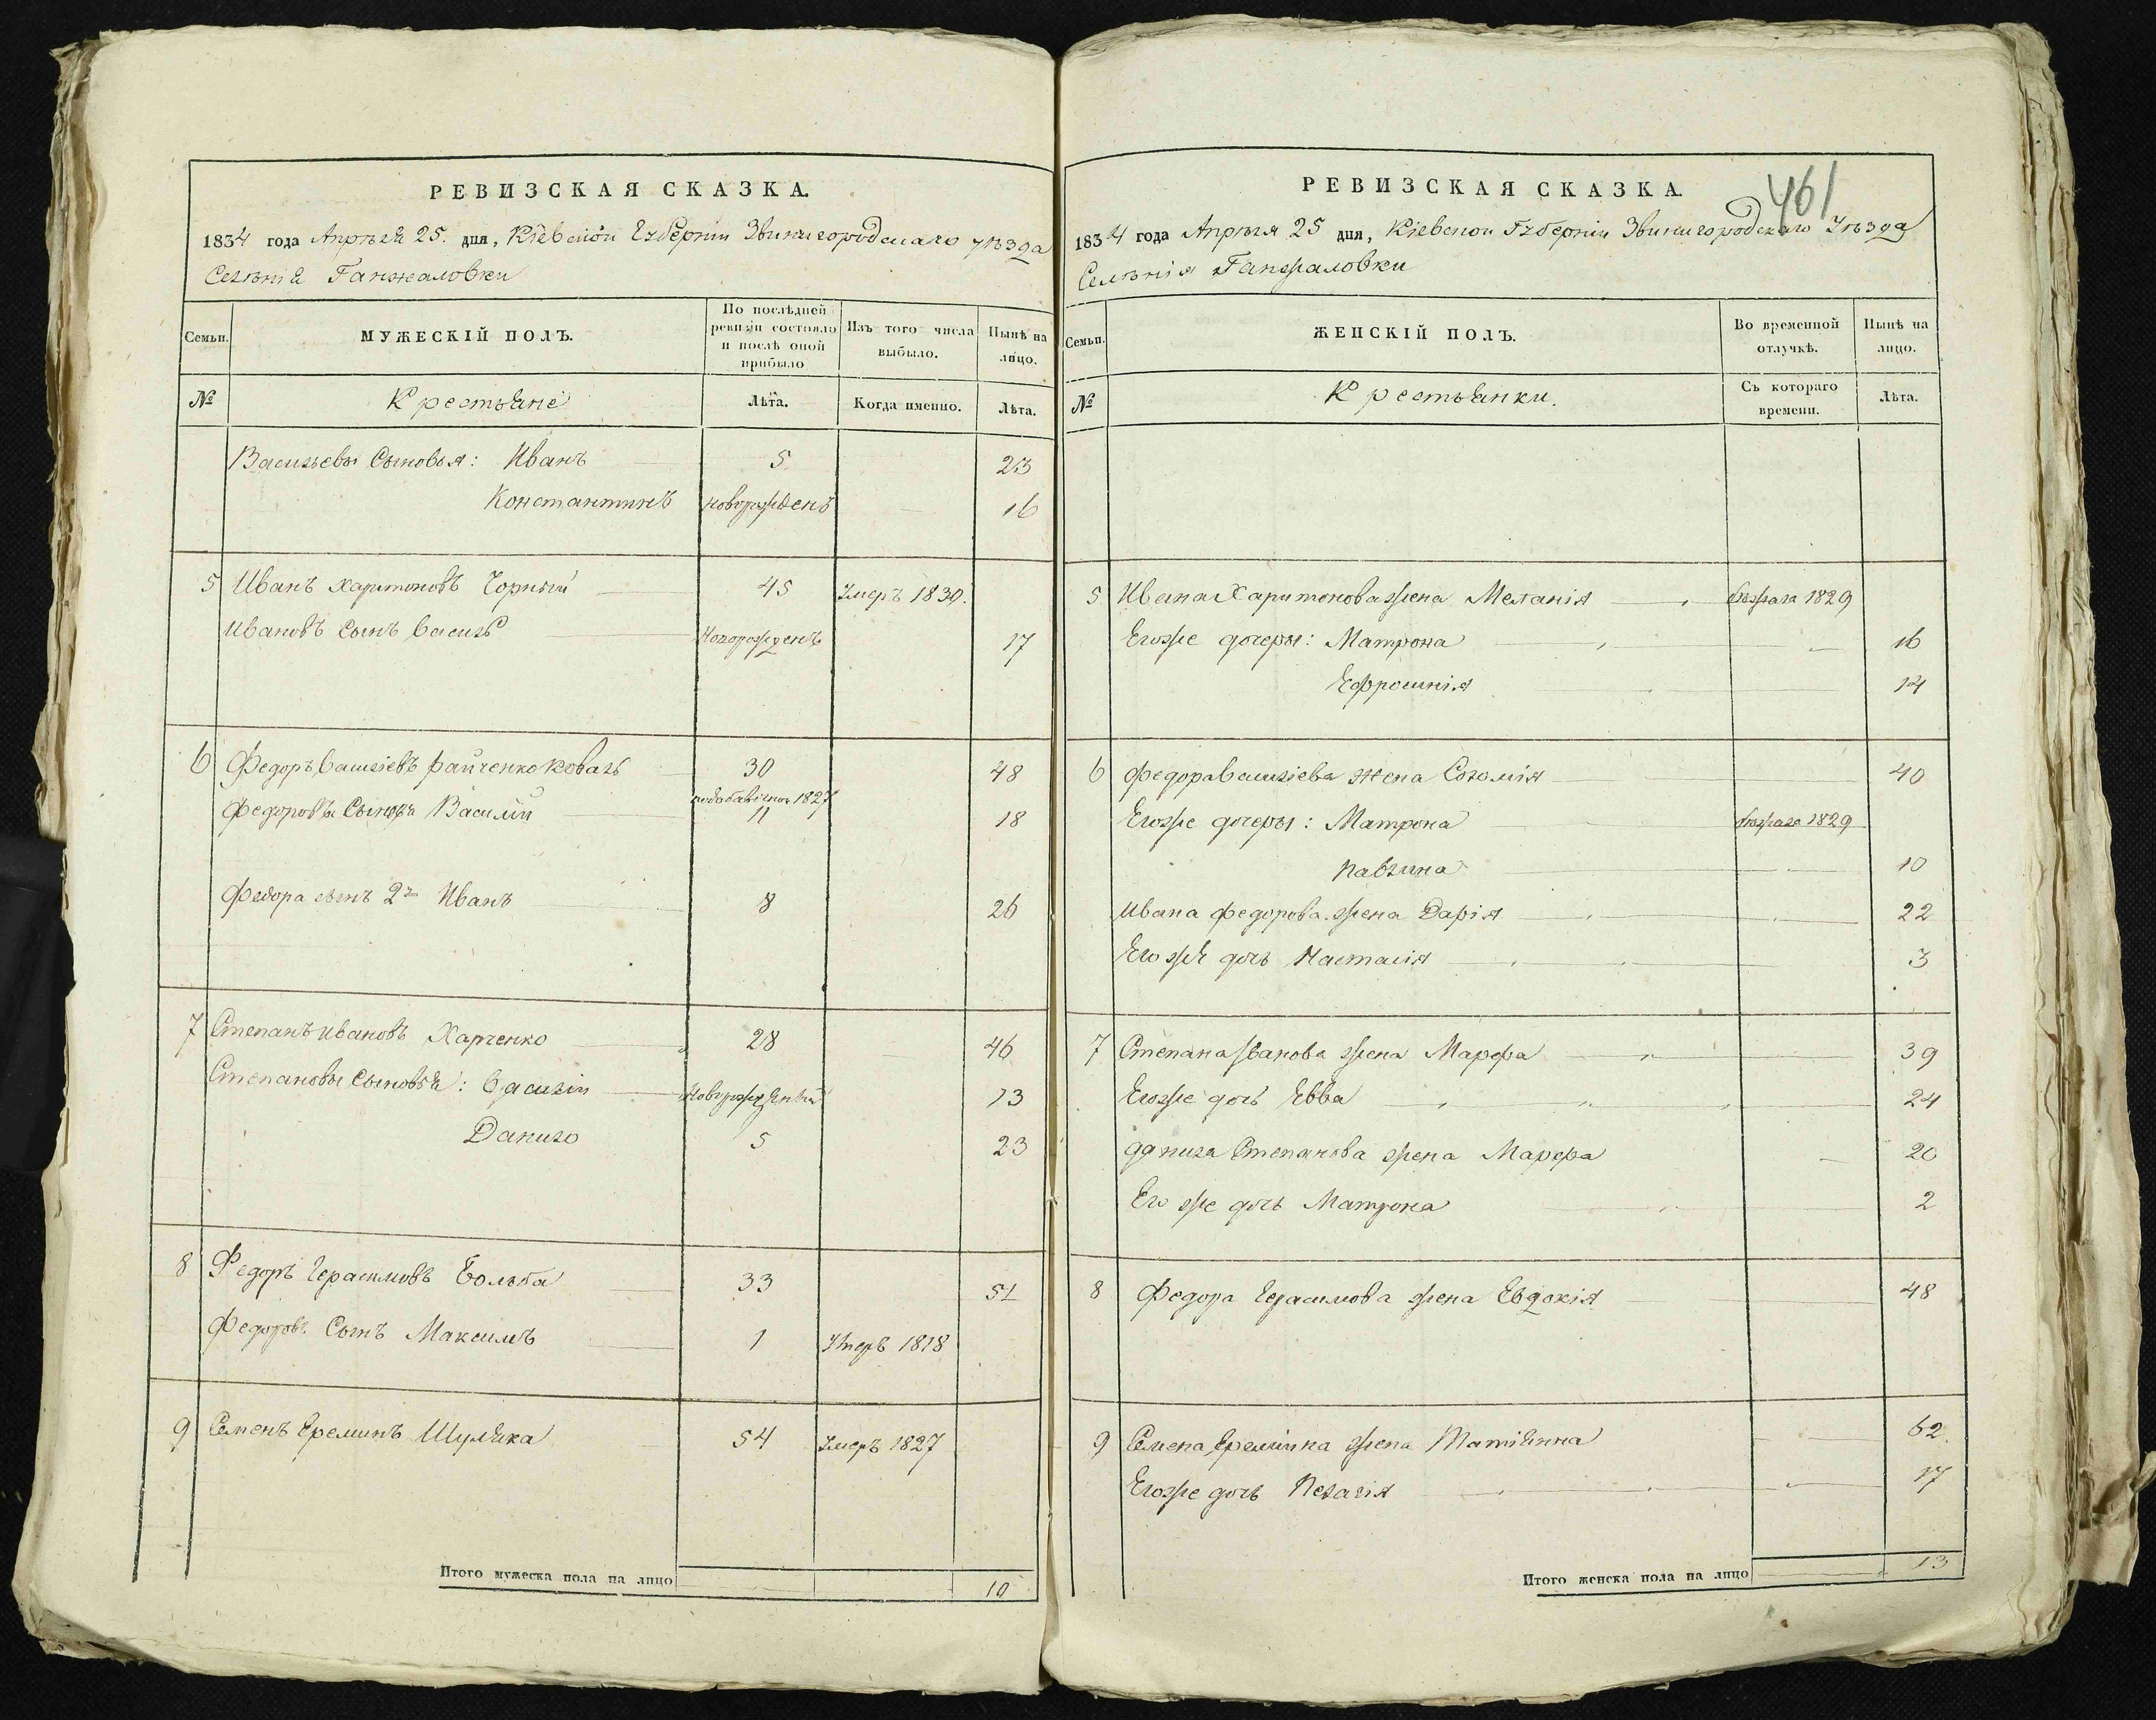 РЕВИЗСКАЯ СКАЗКА.
1834 года Апрѣля 25. дня, Кіевской Губерніи Звинигородскаго уѣзда
Селѣнія Ганжаловки
Семьи.
МУЖЕСКІЙ ПОЛЪ.
По послѣдней ревизіи состояло и послѣ оной прибыло
Изъ того числа выбыло.
Нынѣ на лицо.
№
Крестьяне
Лѣта.
Когда именно.
Лѣта.
Васильевы Сыновья: Иванъ 5 23
Константинъ новорожденъ 16
5 Иванъ Харитоновъ Чорный 45 Умеръ 1830.
Ивановъ Сынъ Василь Новорожденъ 17
6 Федоръ Василіевъ Райченко Коваль 30 48
Федоровы Сыновья Василій 11 18
1827
Федора сынъ 2й Иванъ 8 26
7 Степанъ Ивановъ Харченко 28 46
Степановы Сыновья: Василій Новорожденный 13
Данило 5 23
8 Федоръ Герасимовъ Больба 33 51
Федоровъ Сынъ Максимъ 1 Умеръ 1818
9 Семенъ Ереминъ Шуляка 54 Умеръ 1827
Итого мужеска пола на лицо 10
461
РЕВИЗСКАЯ СКАЗКА.
1834 года Апрѣля 25 дня, Кіевской Губерніи Звинигородскаго Уѣзда
Селѣнія Ганжаловки
Семьи.
ЖЕНСКІЙ ПОЛЪ.
Во временной отлучкѣ.
Нынѣ на лицо.
№
Крестьянки.
Съ котораго времени.
Лѣта.
5 Ивана Харитонова жена Меланія бѣжала 1829
Егоже дочеры: Матрона 16
Ефросинія 14
6 Федора Василіева жена Соломія 40
Егоже дочеры: Матрона бѣжала 1829
Павлина 10
Ивана Федорова жена Дарія 22
Его же дочь Настасія 3
7 Степана Иванова жена Марфа 39
Егоже дочь Евва 24
Данила Степанова жена Марфа 20
Его же дочь Матрона 2
8 Федора Герасимова жена Евдокія 48
9 Семена Еремина жена Матіянна 62.
Егоже дочь Пелагія 17
Итого женска пола на лицо 13